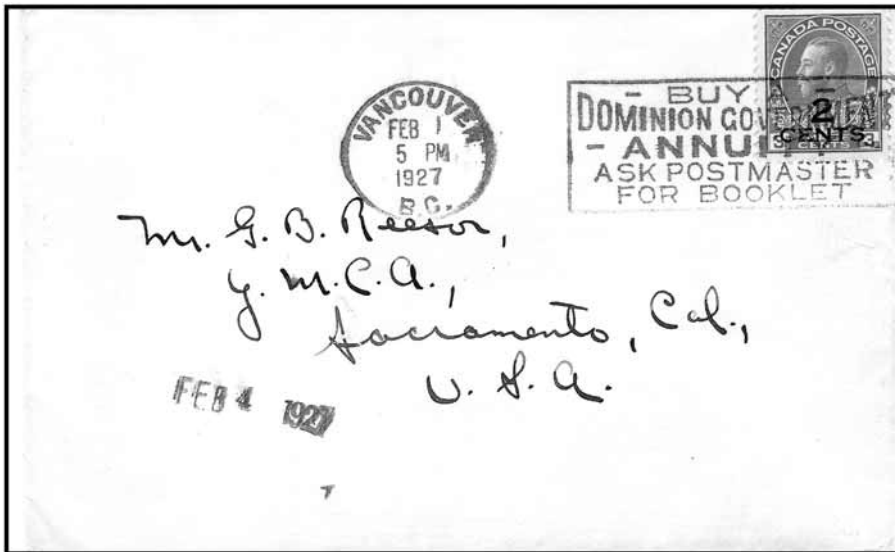 CANADA POSTAGE
2
CENTS
3 CENTS 3
VANCOUVER
FEB 1
5 PM
1927
B.C.
- BUY -
DOMINION GOVERNMENT
- ANNUITY -
ASK POSTMASTER
FOR BOOKLET
Mr. G. B. Reesor,
Y. M. C. A.,
Sacramento, Cal.,
U. S. A.
FEB 4 1927